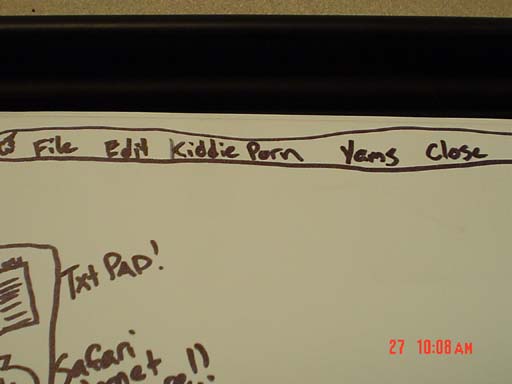 File Edit Kiddie Porn Yams Close
Txt PAD!
Safari
27 10:08 AM